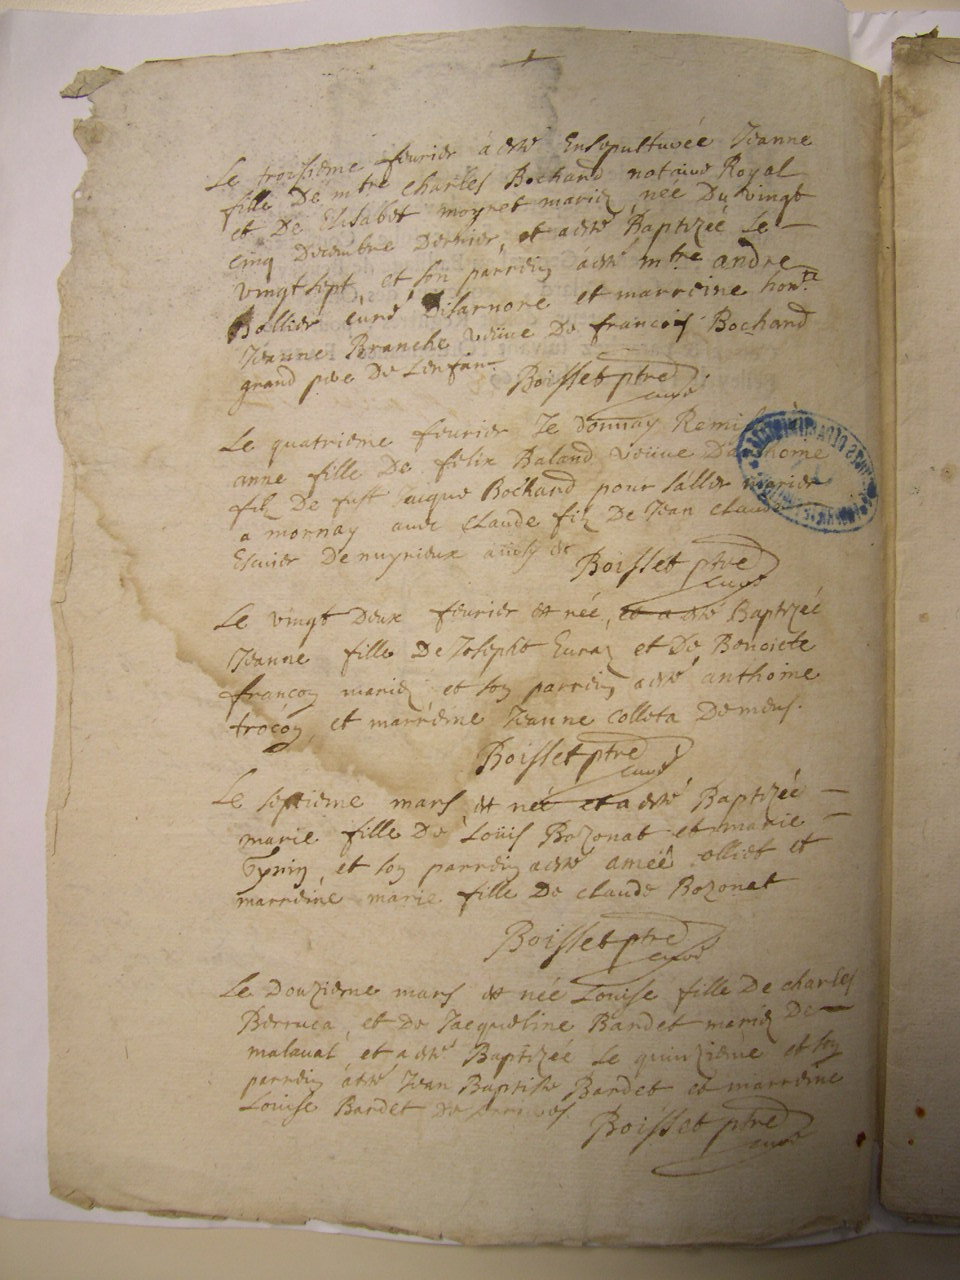 Le troisieme fevrier a esté Ensepulturée Jeanne
fille De mtre Charles Bochand notaire Royal
et De Elisabet moynet mariez, née Du vingt
cinq Decembre Dernier, et a esté Baptizée Le
vingt sept, et son parrein a esté mtre andre
Ballier curé Disarnore et marreine hon.te
Jeanne Branche veüve De francois Bochand
grand pere De Lenfant Boisset ptre
curé
Le quatrieme fevrier Je donnay Remise à
anne fille De felix Baland veüve Danthome
filz De fust Jaque Bochand pour saller marier
a mornay avec Claude filz De Jean Claude
Denuyrieux Boisset ptre
curé
Le vingt Deux fevrier est née, et a esté Baptizée
Jeanne fille De Josepht et De Benoiete
francon mariez et son parrein a esté anthoine
trocon, et marreine Jeanne colleta Demens.
Boisset ptre
curé
Le septieme mars est née et a esté Baptizée
marie fille De Loüis Bozonat et marie
et son parrein a esté ameé olliet et
marreine marie fille De claude Bozonat
Boisset ptre
curé
Le Douzieme mars est née Louise fille De charles
Berruca, et De Jacqueline Bardet mariez De
malaval, et a esté Baptizée Le quinzieme et son
parrein a esté Jean Baptiste Bardet et marreine
Louise Bardet Boisset ptre
curé